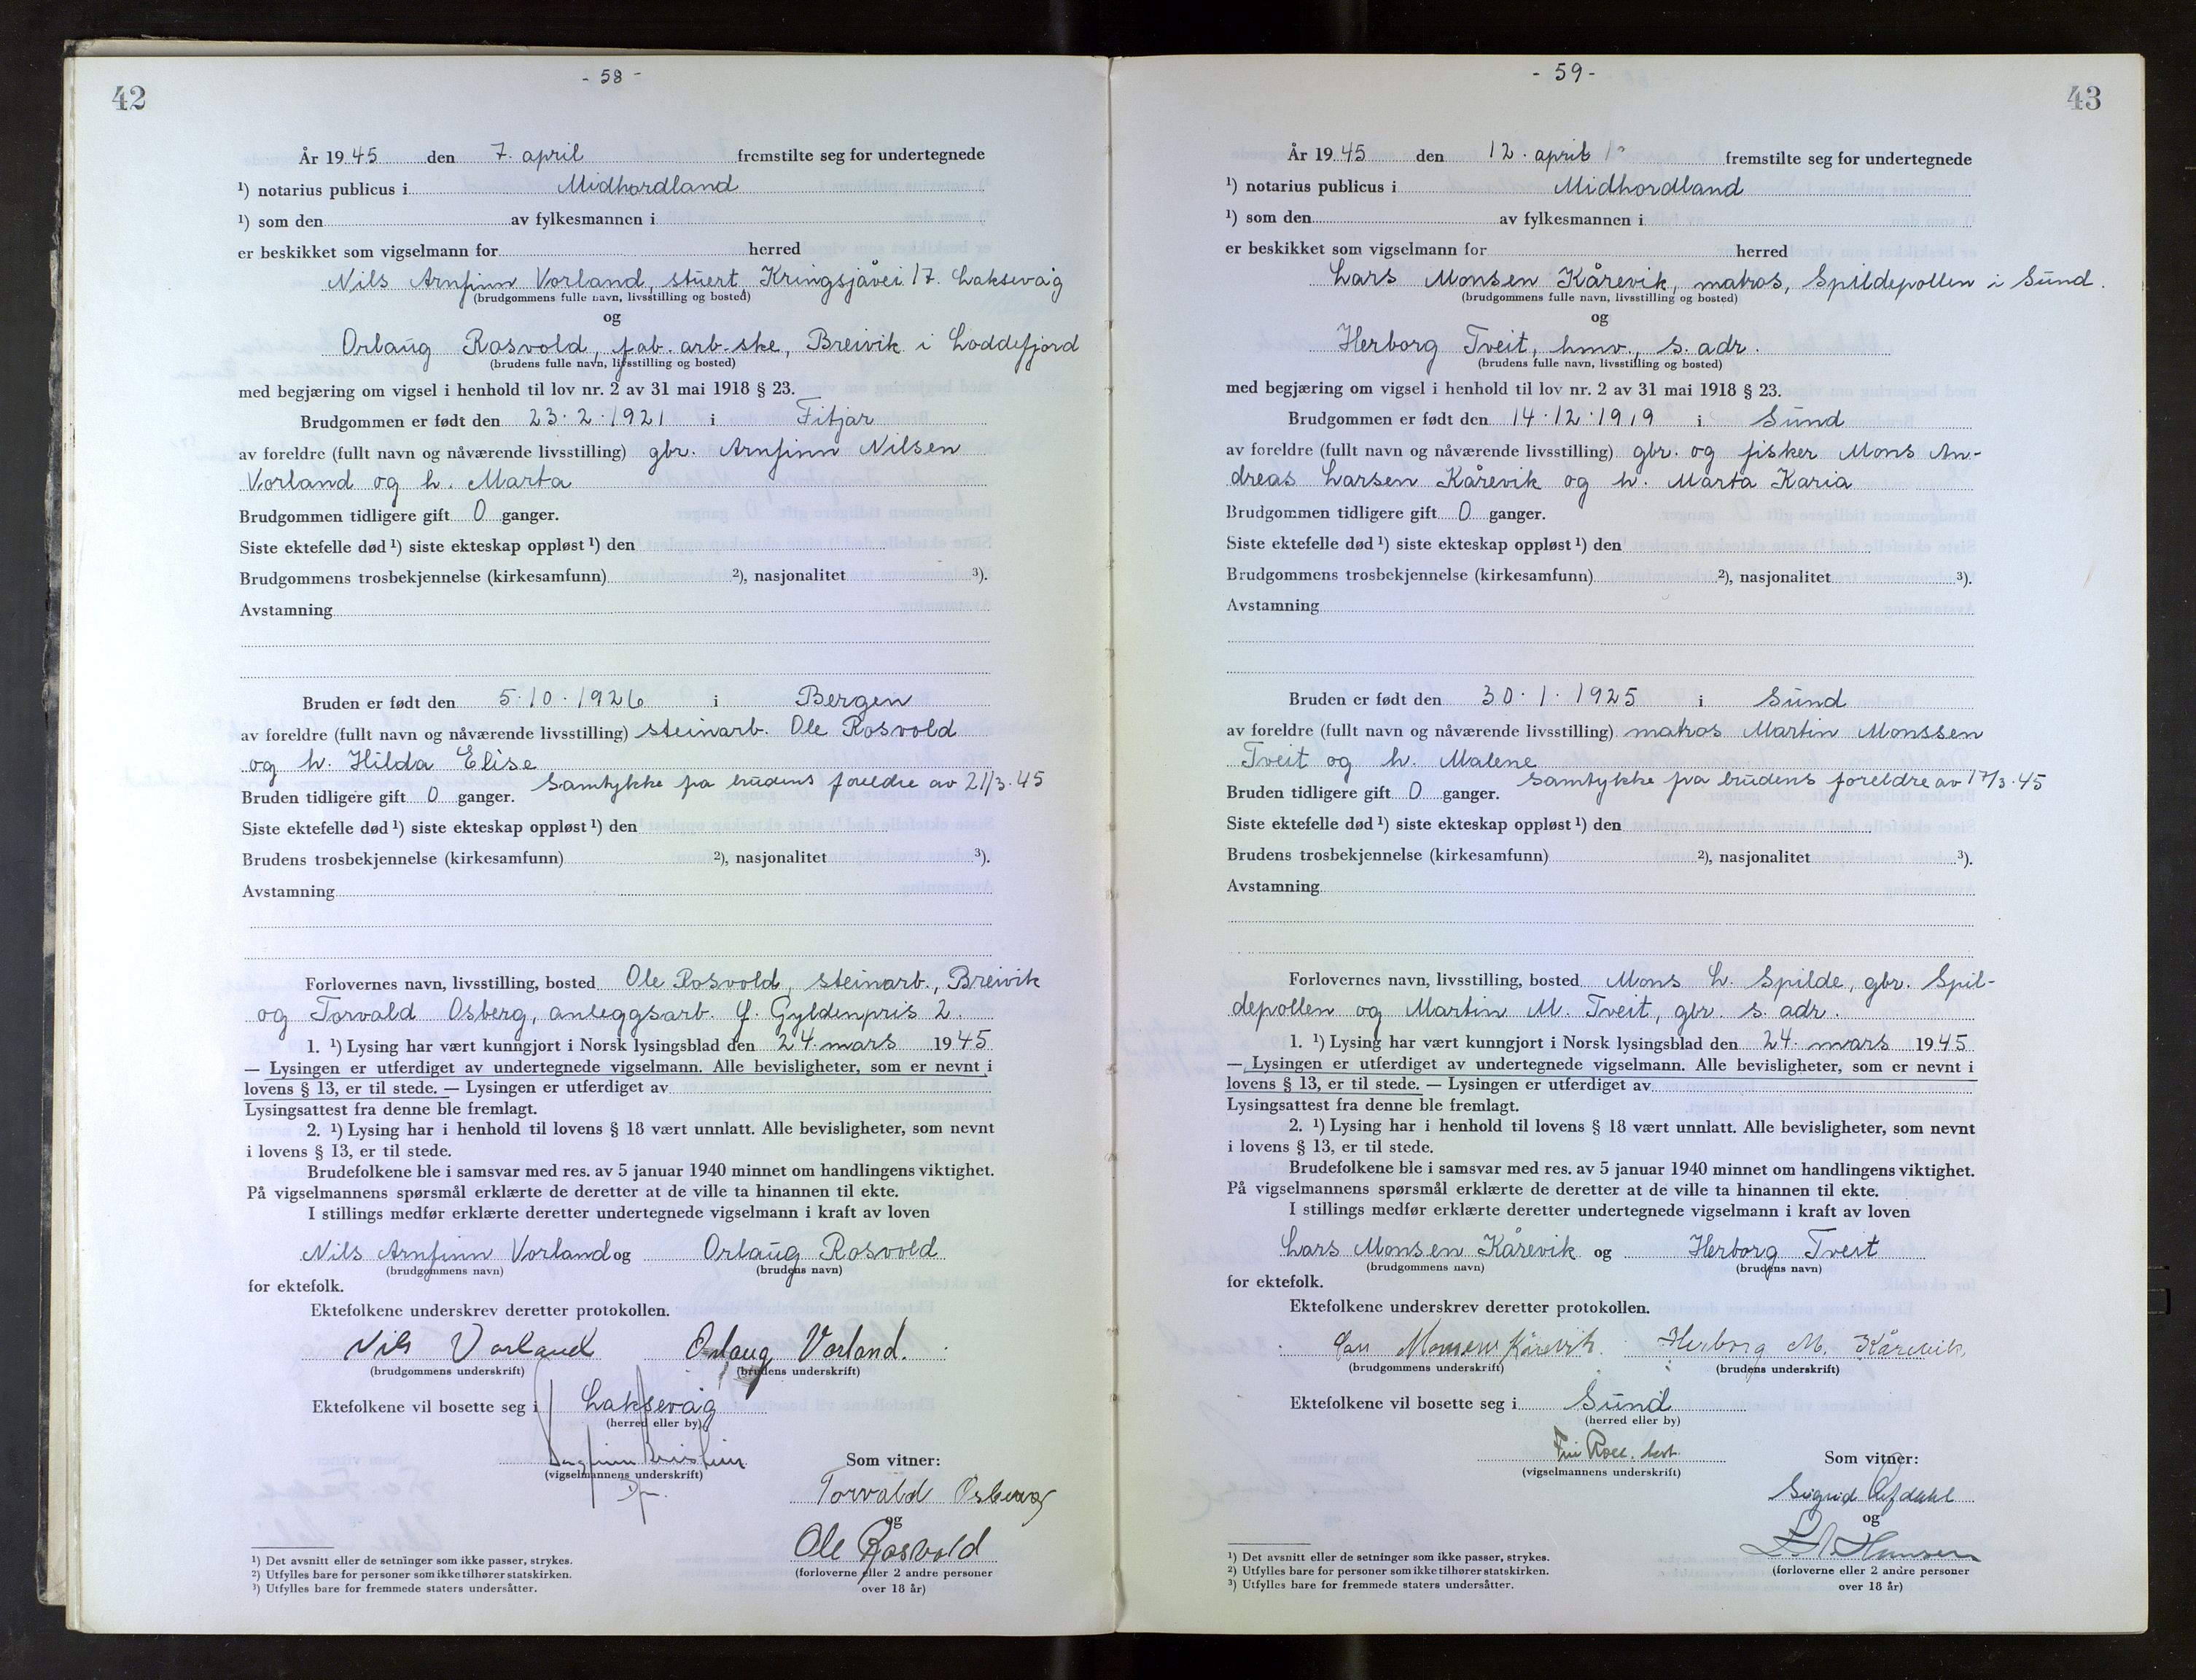 42
- 58 -
År 1945 den 7. april fremstilte seg for undertegnede
¹) notarius publicus i Midhordland
¹) som den av fylkesmannen i
er beskikket som vigselmann for herred
Nils Arnfinn Vorland, stuert Kringsjåvei 17. Laksevåg
(brudgommens fulle navn, livsstilling og bosted)
og
Orlaug Rosvold, fab. arb-ske, Breivik i Loddefjord
(brudens fulle navn, livsstilling og bosted)
med begjæring om vigsel i henhold til lov nr. 2 av 31 mai 1918 § 23.
Brudgommen er født den 23.2.1921 i Fitjar
av foreldre (fullt navn og nåværende livsstilling) gbr. Arnfinn Nilsen
Vorland og h. Marta
Brudgommen tidligere gift 0 ganger.
Siste ektefelle død ¹) siste ekteskap oppløst ¹) den
Brudgommens trosbekjennelse (kirkesamfunn) ²), nasjonalitet ³).
Avstamning
Bruden er født den 5.10.1926 i Bergen
av foreldre (fullt navn og nåværende livsstilling) steinarb. Ole Rosvold
og h. Hilda Elise
Samtykke fra brudens foreldre av 21/3.45
Bruden tidligere gift 0 ganger.
Siste ektefelle død ¹) siste ekteskap oppløst ¹) den
Brudens trosbekjennelse (kirkesamfunn) ²), nasjonalitet ³).
Avstamning
Forlovernes navn, livsstilling, bosted Ole Rosvold, steinarb., Breivik
og Torvald Osberg, anleggsarb. Y. Gyldenpris 2.
1. ¹) Lysing har vært kunngjort i Norsk lysingsblad den 24. mars 1945
— Lysingen er utferdiget av undertegnede vigselmann. Alle bevisligheter, som er nevnt i
lovens § 13, er til stede. — Lysingen er utferdiget av
Lysingsattest fra denne ble fremlagt.
2. ¹) Lysing har i henhold til lovens § 18 vært unnlatt. Alle bevisligheter, som nevnt
i lovens § 13, er til stede.
Brudefolkene ble i samsvar med res. av 5 januar 1940 minnet om handlingens viktighet.
På vigselmannens spørsmål erklærte de deretter at de ville ta hinannen til ekte.
I stillings medfør erklærte deretter undertegnede vigselmann i kraft av loven
Nils Arnfinn Vorland og Orlaug Rosvold
(brudgommens navn) (brudens navn)
for ektefolk.
Ektefolkene underskrev deretter protokollen.
Nils Vorland Orlaug Vorland.
(brudgommens underskrift) (brudens underskrift)
Ektefolkene vil bosette seg i Laksevåg
(herred eller by)
(vigselmannens underskrift)
Som vitner:
Torvald Osberg
og
Ole Rosvold
(forloverne eller 2 andre personer
over 18 år)
¹) Det avsnitt eller de setninger som ikke passer, strykes.
²) Utfylles bare for personer som ikke tilhører statskirken.
³) Utfylles bare for fremmede staters undersåtter.
- 59 -
43
År 1945 den 12. april fremstilte seg for undertegnede
¹) notarius publicus i Midhordland
¹) som den av fylkesmannen i
er beskikket som vigselmann for herred
Lars Monsen Kårevik, matros, Spildepollen i Sund.
(brudgommens fulle navn, livsstilling og bosted)
og
Herborg Tveit, hmv., s. adr.
(brudens fulle navn, livsstilling og bosted)
med begjæring om vigsel i henhold til lov nr. 2 av 31 mai 1918 § 23.
Brudgommen er født den 14.12.1919 i Sund
av foreldre (fullt navn og nåværende livsstilling) gbr. og fisker Mons An-
dreas Larsen Kårevik og h. Marta Karia
Brudgommen tidligere gift 0 ganger.
Siste ektefelle død ¹) siste ekteskap oppløst ¹) den
Brudgommens trosbekjennelse (kirkesamfunn) ²), nasjonalitet ³).
Avstamning
Bruden er født den 30.1.1925 i Sund
av foreldre (fullt navn og nåværende livsstilling) matros Martin Monssen
Tveit og h. Malene
Samtykke fra brudens foreldre av 17/3.45
Bruden tidligere gift 0 ganger.
Siste ektefelle død ¹) siste ekteskap oppløst ¹) den
Brudens trosbekjennelse (kirkesamfunn) ²), nasjonalitet ³).
Avstamning
Forlovernes navn, livsstilling, bosted Mons L. Spilde, gbr. Spil-
depollen og Martin M. Tveit, gbr. s. adr.
1. ¹) Lysing har vært kunngjort i Norsk lysingsblad den 24. mars 1945
— Lysingen er utferdiget av undertegnede vigselmann. Alle bevisligheter, som er nevnt i
lovens § 13, er til stede. — Lysingen er utferdiget av
Lysingsattest fra denne ble fremlagt.
2. ¹) Lysing har i henhold til lovens § 18 vært unnlatt. Alle bevisligheter, som nevnt
i lovens § 13, er til stede.
Brudefolkene ble i samsvar med res. av 5 januar 1940 minnet om handlingens viktighet.
På vigselmannens spørsmål erklærte de deretter at de ville ta hinannen til ekte.
I stillings medfør erklærte deretter undertegnede vigselmann i kraft av loven
Lars Monsen Kårevik og Herborg Tveit
(brudgommens navn) (brudens navn)
for ektefolk.
Ektefolkene underskrev deretter protokollen.
Lars Monsen Kårevik. Herborg M. Kårevik.
(brudgommens underskrift) (brudens underskrift)
Ektefolkene vil bosette seg i Sund
(herred eller by)
(vigselmannens underskrift)
Som vitner:
Sigrid
og
Hansen
(forloverne eller 2 andre personer
over 18 år)
¹) Det avsnitt eller de setninger som ikke passer, strykes.
²) Utfylles bare for personer som ikke tilhører statskirken.
³) Utfylles bare for fremmede staters undersåtter.